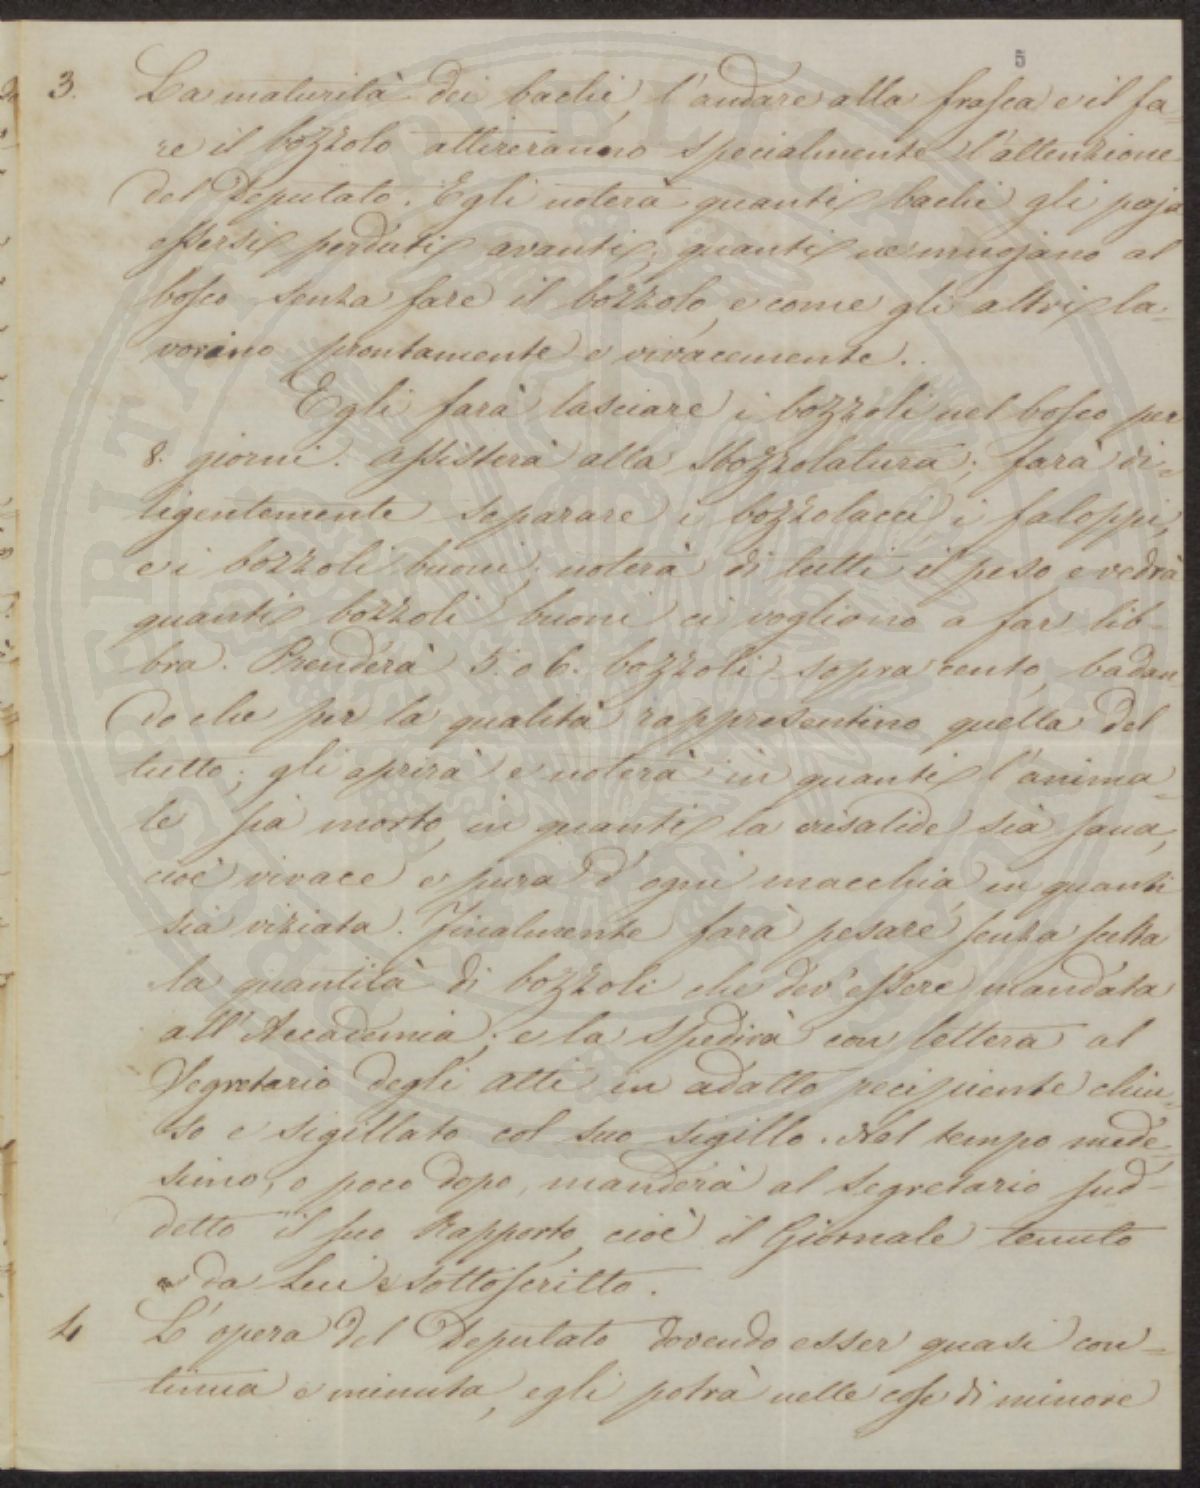 5
3. La maturità dei bachi, l'andare alla frasca e il fa-
re il bozzolo attireranno specialmente l'attenzione
del Deputato. Egli noterà quanti bachi gli paja
essersi perduti avanti; quanti ne muojano al
bosco senza fare il bozzolo, e come gli altri la-
vorino prontamente e vivacemente.
Egli farà lasciare i bozzoli nel bosco per
8. giorni. assisterà alla sbozzolatura; farà di-
ligentemente separare i bozzolacci, i faloppi,
e i bozzoli buoni; noterà di tutti il peso e vedrà
quanti bozzoli buoni ci vogliono a far lib-
bra. Prenderà 5. o 6. bozzoli sopra cento, badan
do che per la qualità rappresentino quella del
tutto; gli aprirà e noterà in quanti l'anima-
le sia morto, in quanti la crisalide sia sana,
cioè vivace e pura d'ogni macchia, in quanti
sia viziata. Finalmente farà pesare, senza scelta
la quantità di bozzoli che dev'essere mandata
all'Accademia; e la spedirà con lettera al
Segretario degli Atti in adatto recipiente chiu-
so e sigillato col suo sigillo. Nel tempo mede-
simo, o poco dopo, manderà al Segretario sud-
detto il suo Rapporto, cioè il Giornale tenuto
da Lui e sottoscritto.
4 L'opera del Deputato dovendo esser quasi con-
tinua e minuta, egli potrà nelle cose di minore